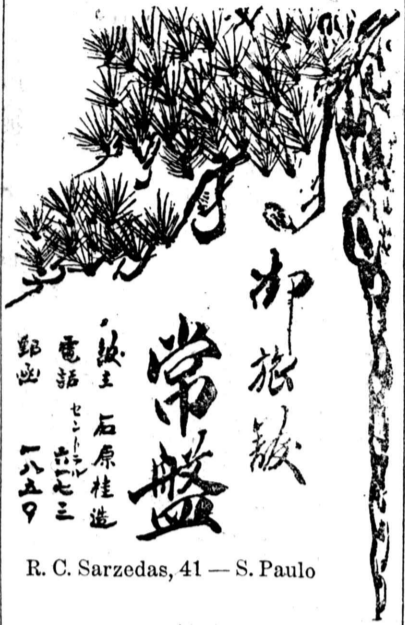 御旅館
常盤
館主 石原桂造
電話 セントラル 六一七三
郵函 一八五〇
R. C. Sarzedas, 41 — S. Paulo